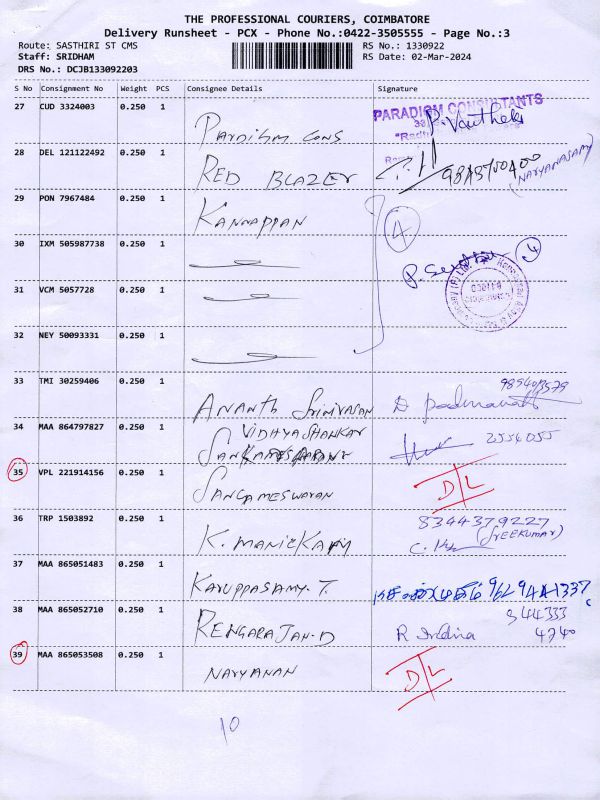 THE PROFESSIONAL COURIERS, COIMBATORE
Delivery Runsheet - PCX - Phone No.:0422-3505555 - Page No.:3
Route: SASTHIRI ST CMS
RS No.: 1330922
Staff: SRIDHAM
RS Date: 02-Mar-2024
DRS No.: DCJB133092203
S No Consignment No Weight PCS Consignee Details Signature
27 CUD 3324003 0.250 1 Pardihm Cons PARADIGM CONSULTANTS
28 DEL 121122492 0.250 1 RED BLAZER (NARYANASAMY)
29 PON 7967484 0.250 1 KANNAPPAN 4
30 IXM 505987738 0.250 1
31 VCM 5057728 0.250 1
32 NEY 50093331 0.250 1
33 TMI 30259406 0.250 1 ANANTH SRINIVASAN D Padmavathi
34 MAA 864797827 0.250 1 VIDHYASHANKAR 2554055
35 VPL 221914156 0.250 1 SANGAMESWARAN D/L
36 TRP 1503892 0.250 1 K. MANICKAM 8344379227
(SREEKUMAR)
37 MAA 865051483 0.250 1 KARUPPASAMY. T.
38 MAA 865052710 0.250 1 RENGARAJAN-D 944333
4740
39 MAA 865053508 0.250 1 NARYANAN D/L
10